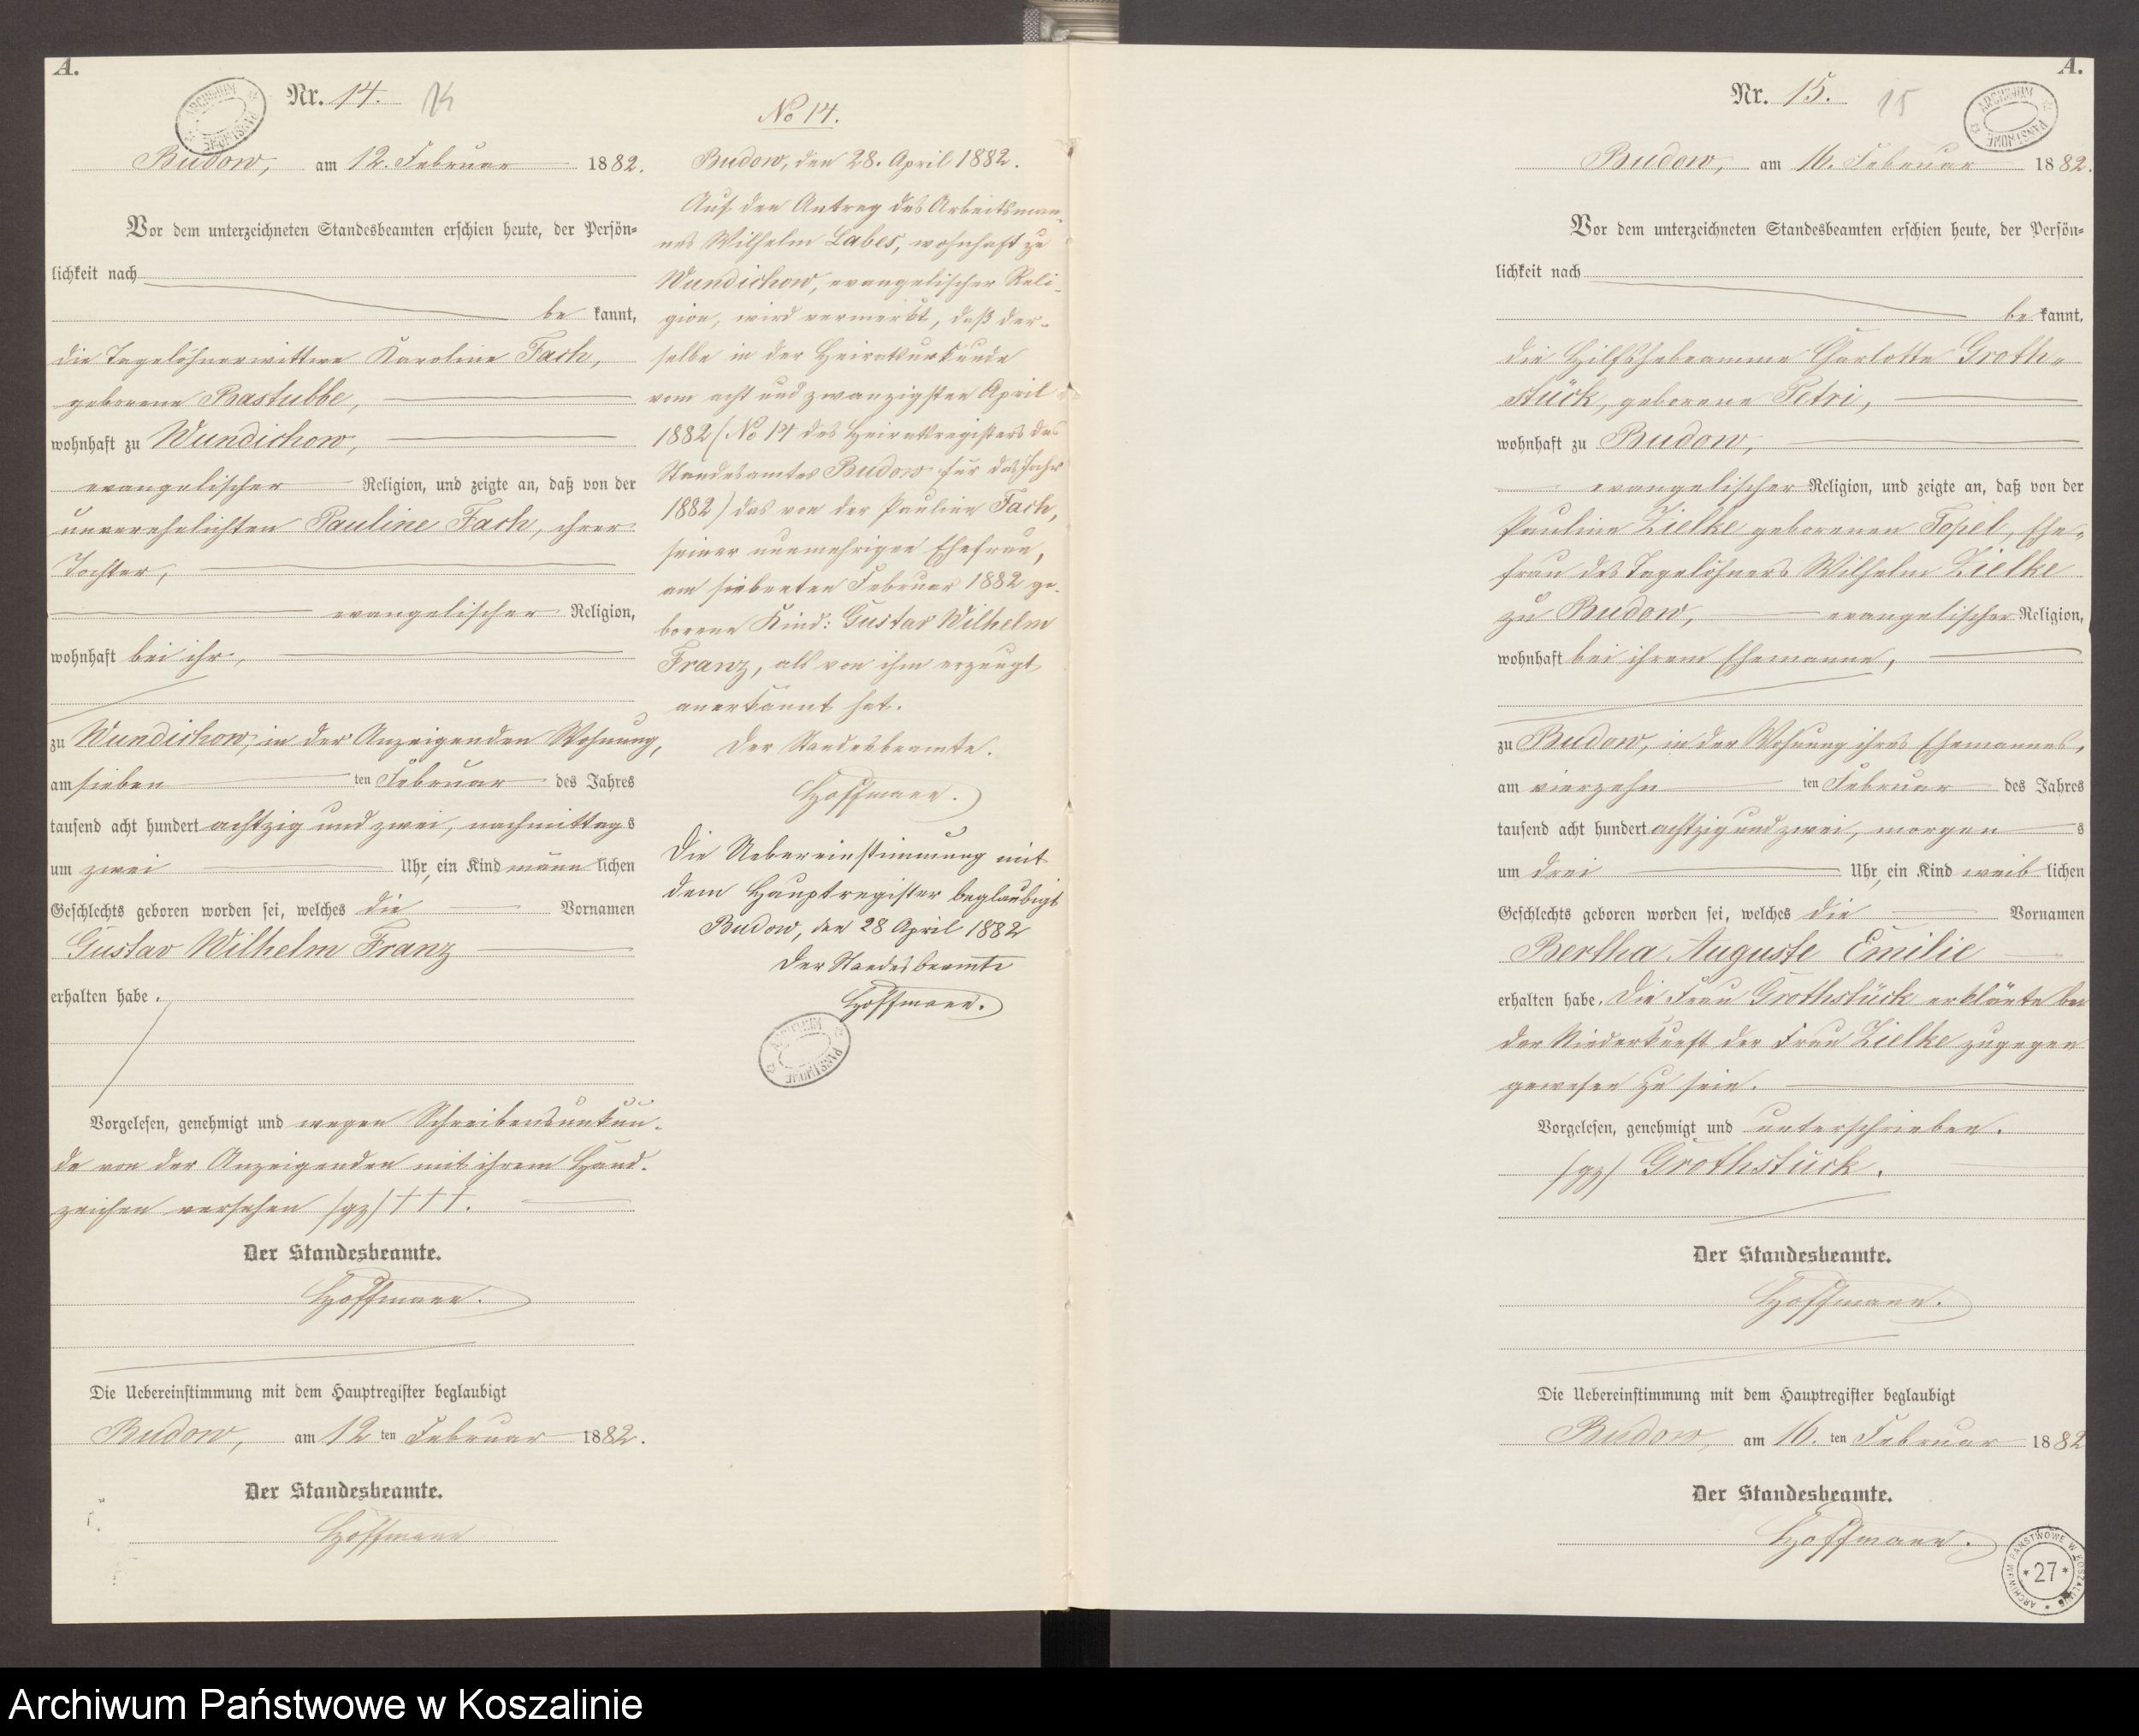 A.
Nr. 14. 14
Budow, am 12. Februar 1882.
Vor dem unterzeichneten Standesbeamten erschien heute, der Persön-
lichkeit nach
be kannt,
die Tagelöhnerwittwe Karoline Fach,
geborene Bastubbe,
wohnhaft zu Wundichow,
evangelischer Religion, und zeigte an, daß von der
unverehelichten Pauline Fach, ihrer
Tochter,
evangelischer Religion,
wohnhaft bei ihr,
zu Wundichow, in der Anzeigenden Wohnung,
am sieben ten Februar des Jahres
tausend acht hundert achtzig und zwei, nachmittags
um zwei Uhr, ein Kind männ lichen
Geschlechts geboren worden sei, welches die Vornamen
Gustav Wilhelm Franz
erhalten habe.
Vorgelesen, genehmigt und wegen Schreibensunkun-
de von der Anzeigenden mit ihrem Hand-
zeichen versehen /gz/ †††.
Der Standesbeamte.
Hoffmann.
Die Uebereinstimmung mit dem Hauptregister beglaubigt
Budow, am 12 ten Februar 1882.
Der Standesbeamte.
Hoffmann
No 14.
Budow, den 28. April 1882.
Auf den Antrag des Arbeitsman-
nes Wilhelm Labes, wohnhaft zu
Wundichow, evangelischer Reli-
gion, wird vermerkt, daß der-
selbe in der Heiratsurkunde
vom acht und zwanzigsten April
1882 (No 14 des Heiratsregisters des
Standesamtes Budow für das Jahr
1882) das von der Pauline Fach,
seiner nunmehrigen Ehefrau,
am siebenten Februar 1882 ge-
borene Kind: Gustav Wilhelm
Franz, als von ihm erzeugt
anerkannt hat.
Der Standesbeamte.
Hoffmann.
Die Uebereinstimmung mit
dem Hauptregister beglaubigt
Budow, den 28 April 1882
Der Standesbeamte
Hoffmann.
A.
Nr. 15. 15
Budow, am 16. Februar 1882.
Vor dem unterzeichneten Standesbeamten erschien heute, der Persön-
lichkeit nach
be kannt,
die Hilfshebeamme Charlotte Groth-
stück, geborene Petri,
wohnhaft zu Budow,
evangelischer Religion, und zeigte an, daß von der
Pauline Zielke geborenen Topel, Ehe-
frau des Tagelöhners Wilhelm Zielke
zu Budow, evangelischer Religion,
wohnhaft bei ihrem Ehemanne,
zu Budow, in der Wohnung ihres Ehemannes,
am vierzehn ten Februar des Jahres
tausend acht hundert achtzig und zwei, morgen s
um drei Uhr, ein Kind weib lichen
Geschlechts geboren worden sei, welches die Vornamen
Bertha Auguste Emilie
erhalten habe. Die Frau Grothstück erklärte bei
der Niederkunft der Frau Zielke zugegen
gewesen zu sein.
Vorgelesen, genehmigt und unterschrieben.
/gz/ Grothstück.
Der Standesbeamte.
Hoffmann.
Die Uebereinstimmung mit dem Hauptregister beglaubigt
Budow, am 16. ten Februar 1882
Der Standesbeamte.
Hoffmann.
ARCHIWUM PAŃSTWOWE W KOSZALINIE
* 27 *
ARCHIWUM PAŃSTWOWE
ARCHIWUM PAŃSTWOWE
ARCHIWUM PAŃSTWOWE
Archiwum Państwowe w Koszalinie